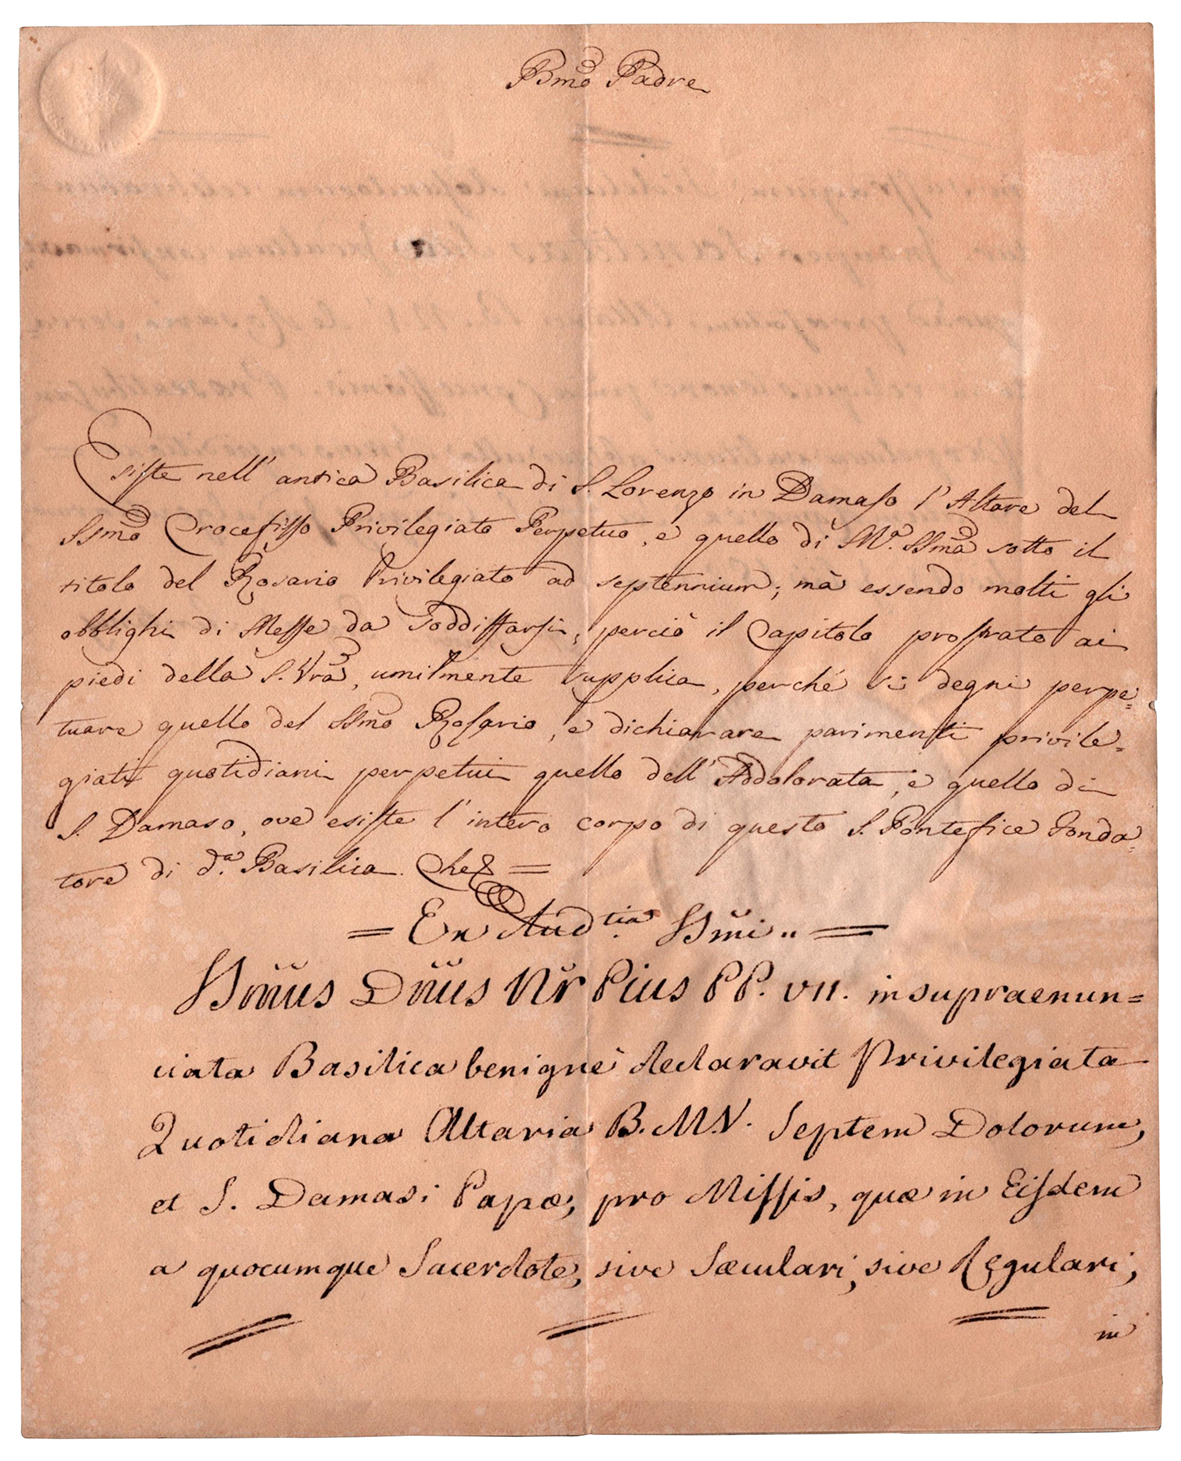 Bm̃o Padre
Esiste nell' antica Basilica di S. Lorenzo in Damaso l'Altare del
SSm̃o Crocefisso Privilegiato Perpetuo, e quello di M.ª SSm̃a sotto il
titolo del Rosario Privilegiato ad septennium; mà essendo molti gli
obblighi di Messe da soddisfarsi, perciò il Capitolo prostrato ai
piedi della S. Vrã, umilmente supplica, perché si degni perpe=
tuare quello del SSm̃o Rosario, e dichiarare parimenti privile=
giati quotidiani perpetui quello dell' Addolorata, e quello di
S. Damaso, ove esiste l'intero corpo di questo S. Pontefice Fonda=
tore di d.ª Basilica. Che =
= Ex Aud.tia SSm̃i =
SSm̃us Dñus Nr̃ Pius PP. VII. in supraenun=
ciata Basilica benignè declaravit Privilegiata
Quotidiana Altaria B.M.V. Septem Dolorum,
et S. Damasi Papæ, pro Missis, quæ in Eisdem
a quocumque Sacerdote, sive Sæculari, sive Regulari,
in